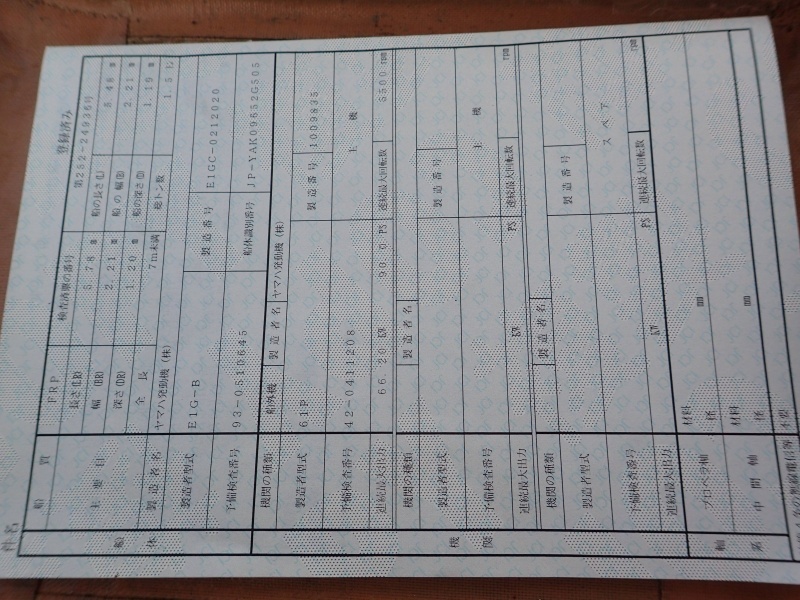 件名
船質 FRP 検査済票の番号 第252-24936号 登録済み
主要目 長さ(LR) 5.78 m 船の長さ(L) 5.48 m
幅 (BR) 2.21 m 船の幅(B) 2.21 m
深さ(DR) 1.20 m 船の深さ(D) 1.19 m
全長 7m未満 総トン数
製造者名 ヤマハ発動機(株)
製造者型式 E1G-B 製造番号 E1GC-0212020
予備検査番号 93-0510645 船体識別番号 JP-YAK09652G505
船体
機関の種類 船外機 製造者名 ヤマハ発動機(株)
製造者型式 61P 製造番号 1009835
予備検査番号 42-04111208 主機
連続最大出力 66.20 kW 90.0 PS 連続最大回転数 5500 rpm
機関の種類 製造者名
製造者型式 製造番号
予備検査番号 主機
連続最大出力 kW PS 連続最大回転数 rpm
機関の種類 製造者名
製造者型式 製造番号
予備検査番号 スペア
連続最大出力 kW PS 連続最大回転数 rpm
機関
プロペラ軸 材料
径 mm
中間軸 材料
径 mm
軸系
不要